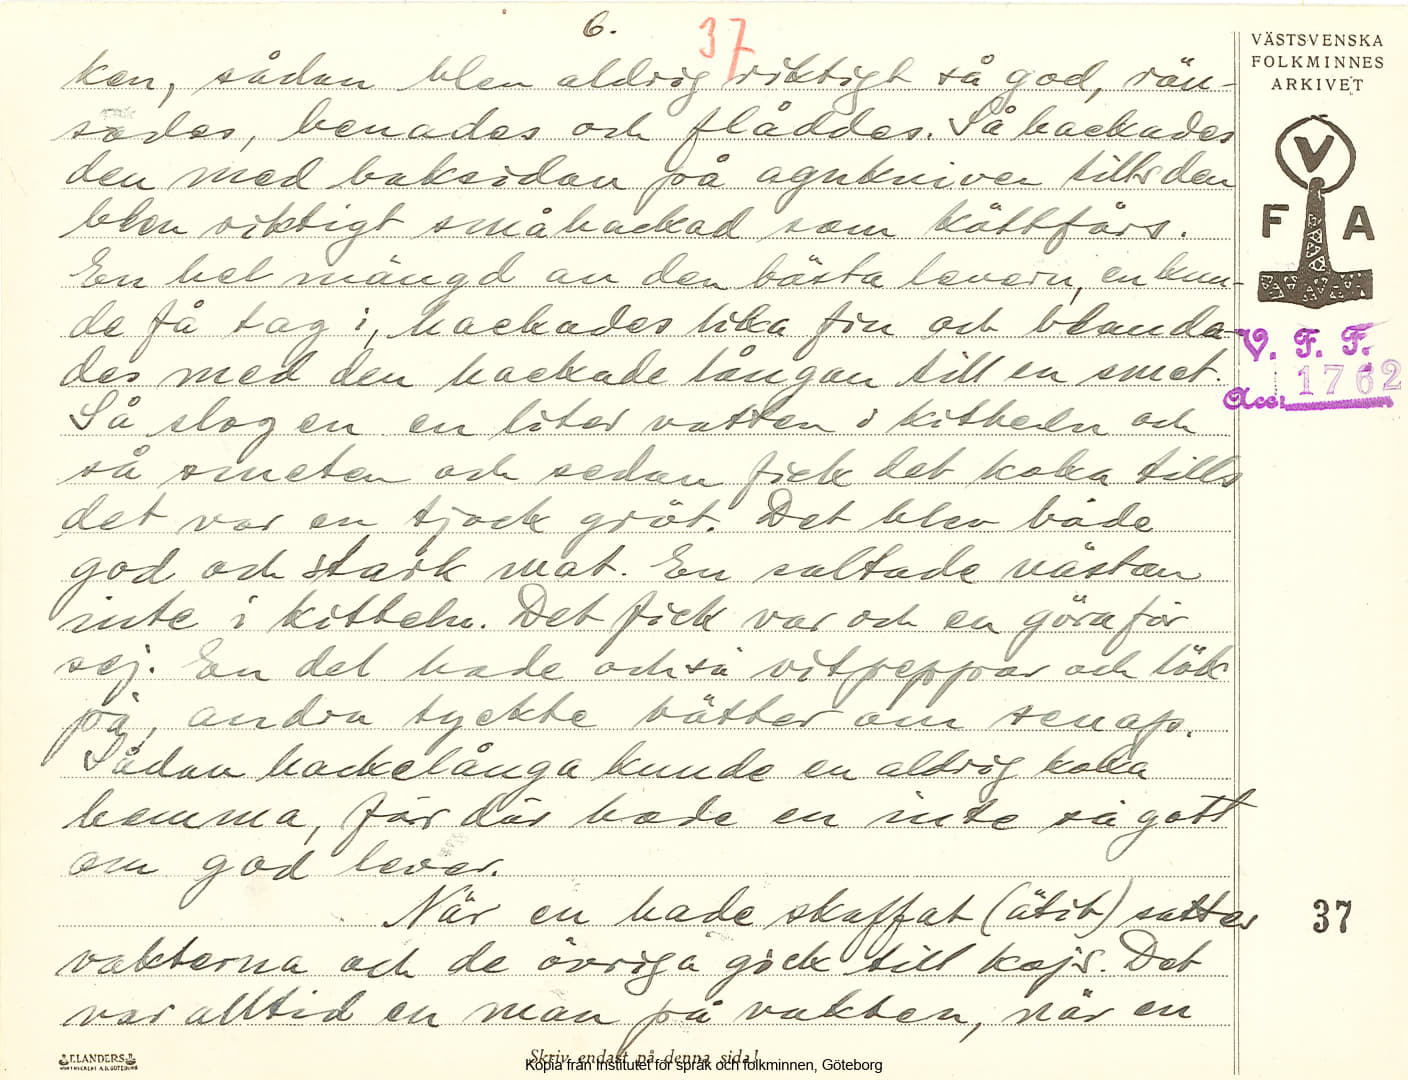 6.
37
VÄSTSVENSKA
FOLKMINNES
ARKIVET
ken, sådan blev aldrig riktigt så god, rän-
sades, benades och flåddes. Så hackades
den med baksidan på agnkniven tills den
blev riktigt småhackad som köttfärs.
En hel mängd av den bästa levern, en kun-
de få tag i, hackades lika fin och blanda-
des med den hackade långan till en smet.
Så slog en en liter vatten i kitteln och
så smeten och sedan fick det koka tills
det var en tjock gröt. Det blev både
god och stark mat. En saltade nästan
inte i kitteln. Det fick var och en göra för
sej. En del hade också vitpeppar och lök
på, andra tyckte bätter om senap.
Sådan hackelånga kunde en aldrig koka
hemma, för där hade en inte så gott
om god lever.
När en hade skaffat (ätit) sattes
vakterna och de övriga gick till kojs. Det
var alltid en man på vakten, när en
V
F A
V. F. F.
Acc: 1762
37
F. LANDERS
Skriv endast på denna sida!
Kopia från Institutet för språk och folkminnen, Göteborg